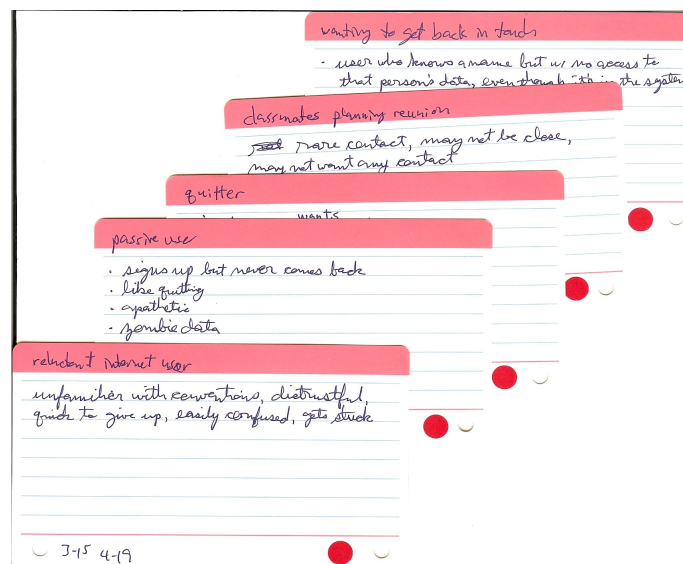 wanting to get back in touch
· user who knows a name but w/ no access to
that person's data, even though it's in the system
classmates planning reunion
rare contact, may not be close,
may not want any contact
quitter
wants
passive user
· signs up but never comes back
· like quitting
· apathetic
· zombie data
reluctant internet user
unfamiliar with conventions, distrustful,
quick to give up, easily confused, gets stuck
3-15 4-19